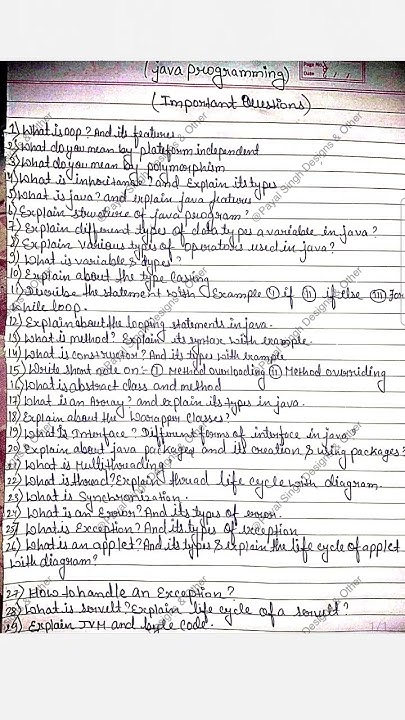 (java programming)
Page No.
Date
(Important Questions)
1) What is oop? And its features
2) What do you mean by plateform independent
3) What do you mean by polymorphism
4) What is inheritance? and Explain its types
5) What is java? and explain java features
6) Explain structure of java program?
7) Explain different types of data types a variable in java?
8) Explain various types of operators used in java?
9) What is variable & types?
10) Explain about the type casing
11) Describe the statement with Example (i) if (ii) if else (iii) For
While loop.
12) Explain about the looping statements in java.
13) What is method? Explain its syntax with example.
14) What is constructor? And its types with example
15) Write short note on:- (i) Method overloading (ii) Method overriding
16) What is abstract class and method
17) What is an Array? and explain its types in java.
18) Explain about the Warapper classes?
19) What is Interface? Different forms of interface in java
20) Explain about java packages and its creation & using packages?
21) What is Multithreading
22) What is thread? Explain thread life cycle with diagram.
23) What is Synchronization.
24) What is an Error? And its types of error.
25) What is Exception? And its types of exception
26) What is an applet? And its types & explain the life cycle of applet
with diagram?
27) How to handle an Exception?
28) What is servelt? Explain life cycle of a servelt?
29) Explain JVM and byte code.
@Payal Singh Designs & Other